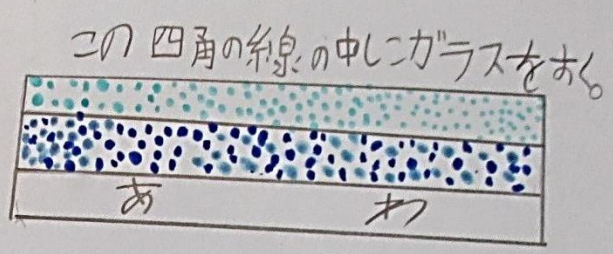 この四角の線の中にガラスをおく。
あ わ